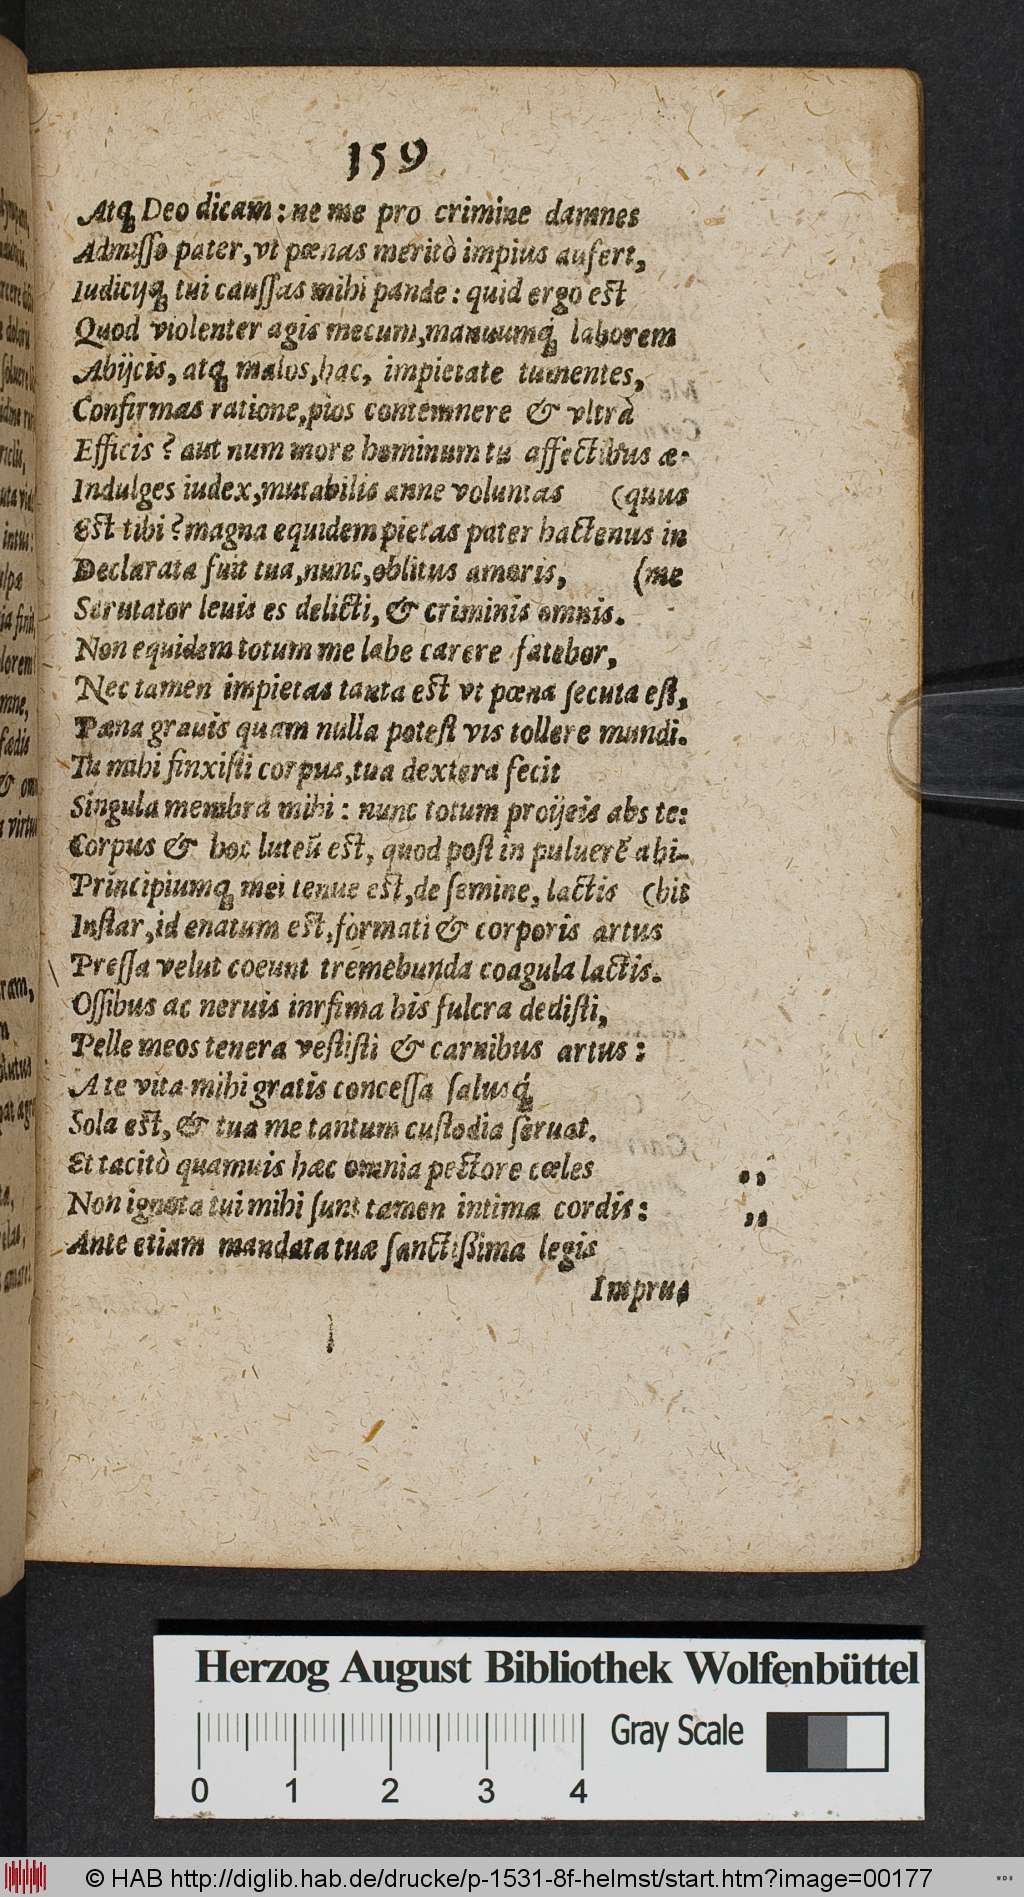 159
Atq; Deo dicam: ne me pro crimine damnes
Admisso pater, vt pœnas meritò impius aufert,
Iudicijq; tui caussas mihi pande: quid ergo est
Quod violenter agis mecum, manuumq́; laborem
Abijcis, atq; malos, hac, impietate tumentes,
Confirmas ratione, pios contemnere & vltrà
Efficis? aut num more hominum tu affectibus æ-
Indulges iudex, mutabilis anne voluntas (quus
Est tibi? magna equidem pietas pater hactenus in
Declarata fuit tua, nunc, oblitus amoris, (me
Scrutator leuis es delicti, & criminis omnis.
Non equidem totum me labe carere fatebor,
Nec tamen impietas tanta est vt pœna secuta est,
Pœna grauis quam nulla potest vis tollere mundi.
Tu mihi finxisti corpus, tua dextera fecit
Singula membra mihi: nunc totum proijcis abs te:
Corpus & hoc luteũ est, quod post in puluerẽ abi-
Principiumq; mei tenue est, de semine, lactis (bit
Instar, id enatum est, formati & corporis artus
Pressa velut coeunt tremebunda coagula lactis.
Ossibus ac neruis inrfima his fulcra dedisti,
Pelle meos tenera vestisti & carnibus artus:
A te vita mihi gratis concessa salusq́;
Sola est, & tua me tantum custodia seruat.
Et tacitò quamuis hæc omnia pectore cœles ,,
Non ignota tui mihi sunt tamen intima cordis: ,,
Ante etiam mandata tuæ sanctißima legis
Imprus
Herzog August Bibliothek Wolfenbüttel
Gray Scale
0 1 2 3 4
© HAB http://diglib.hab.de/drucke/p-1531-8f-helmst/start.htm?image=00177